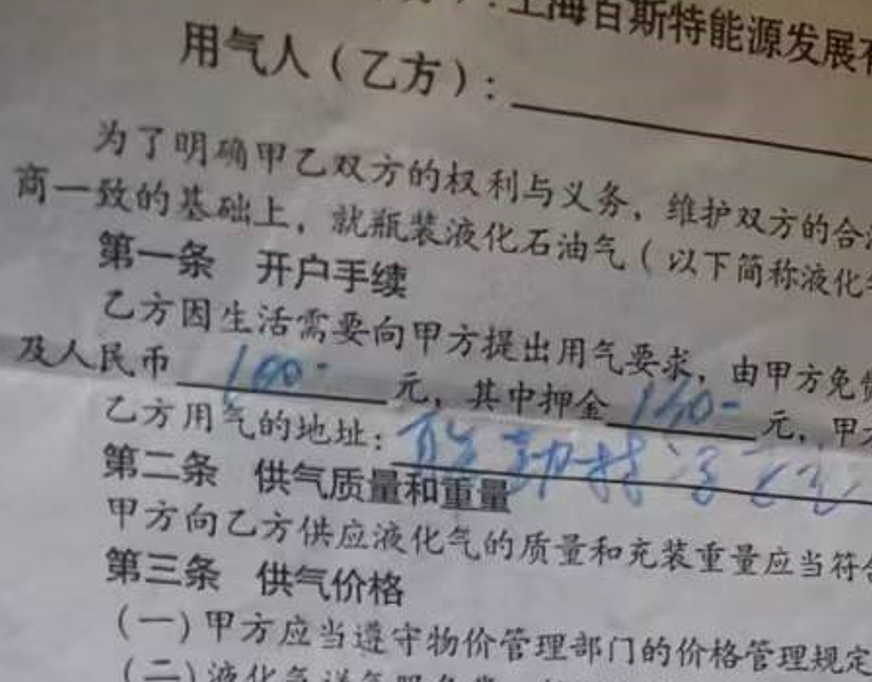 上海百斯特能源发展有
用气人（乙方）：
为了明确甲乙双方的权利与义务，维护双方的合法
商一致的基础上，就瓶装液化石油气（以下简称液化气
第一条 开户手续
乙方因生活需要向甲方提出用气要求，由甲方免费
及人民币 100- 元，其中押金 150- 元，甲方
乙方用气的地址：
第二条 供气质量和重量
甲方向乙方供应液化气的质量和充装重量应当符合
第三条 供气价格
（一）甲方应当遵守物价管理部门的价格管理规定
（二）液化气送气服务费